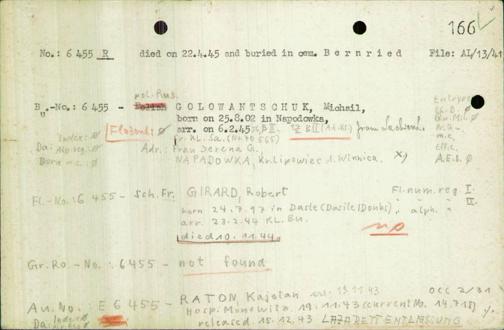 166
No.: 6 455 R died on 22.4.45 and buried in cem. Bernried File: AL/13/41
pol. Russ.
Bu-No.: 6 455 - GOLOWANTSCHUK, Michail,
born on 25.8.02 in Napodowka,
Flossenb: Ø arr. on 6.2.45
Adr.: Frau Serena G.
NAPADOWKA, Kr. Lipowiec b. Winnica. x)
A.E.S. Ø
Fl.-No.: 6 455 - Sch. Fr. GIRARD, Robert Fl. num. reg. I
born 24.7.97 in Dasle (Dasile/Doubs) " alph. " II.
arr. 23.2.44 KL. Bu.
died 10.11.44 no
Gr. Ro. - No.: 6455 - not found
Au. No.: E 6455 - RATON, Kajetan 19.11.43 OCC 2/31
Hosp. Monowitz 19.11.43 (current No. 14.715)
released 15.12.43 LAZARETTENTLASSUNG